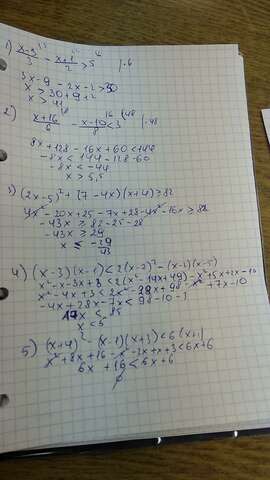 1) x-3/3 - x+1/2 > 5 |·6
3x-9 -2x-2 > 30
x > 30+9+2
x > 41
2) x+16/6 - x-10/8 < 3 |·48
8x+128-16x+60<144
-8x < 144-128-60
-8x < -44
x > 5,5
3) (2x-5)²+(7-4x)(x+4)≥82
4x²-20x+25-7x+28-4x²-16x ≥ 82
-43x ≥ 82-25-28
-43x ≥ 29
x ≤ -29/43
4) (x-3)(x-1)<2(x-7)²-(x-2)(x-5)
x²-x-3x+3 < 2(x²-14x+49)-x²+5x+2x-10
x²-4x+3 < 2x²-28x+98-x²+7x-10
-4x+28x-7x < 98-10-3
17x < 85
x < 5
5) (x+4)² - (x-1)(x+3)<6(x+1)
x²+8x+16-x²-2x+x+3<6x+6
6x + 19 < 6x+6